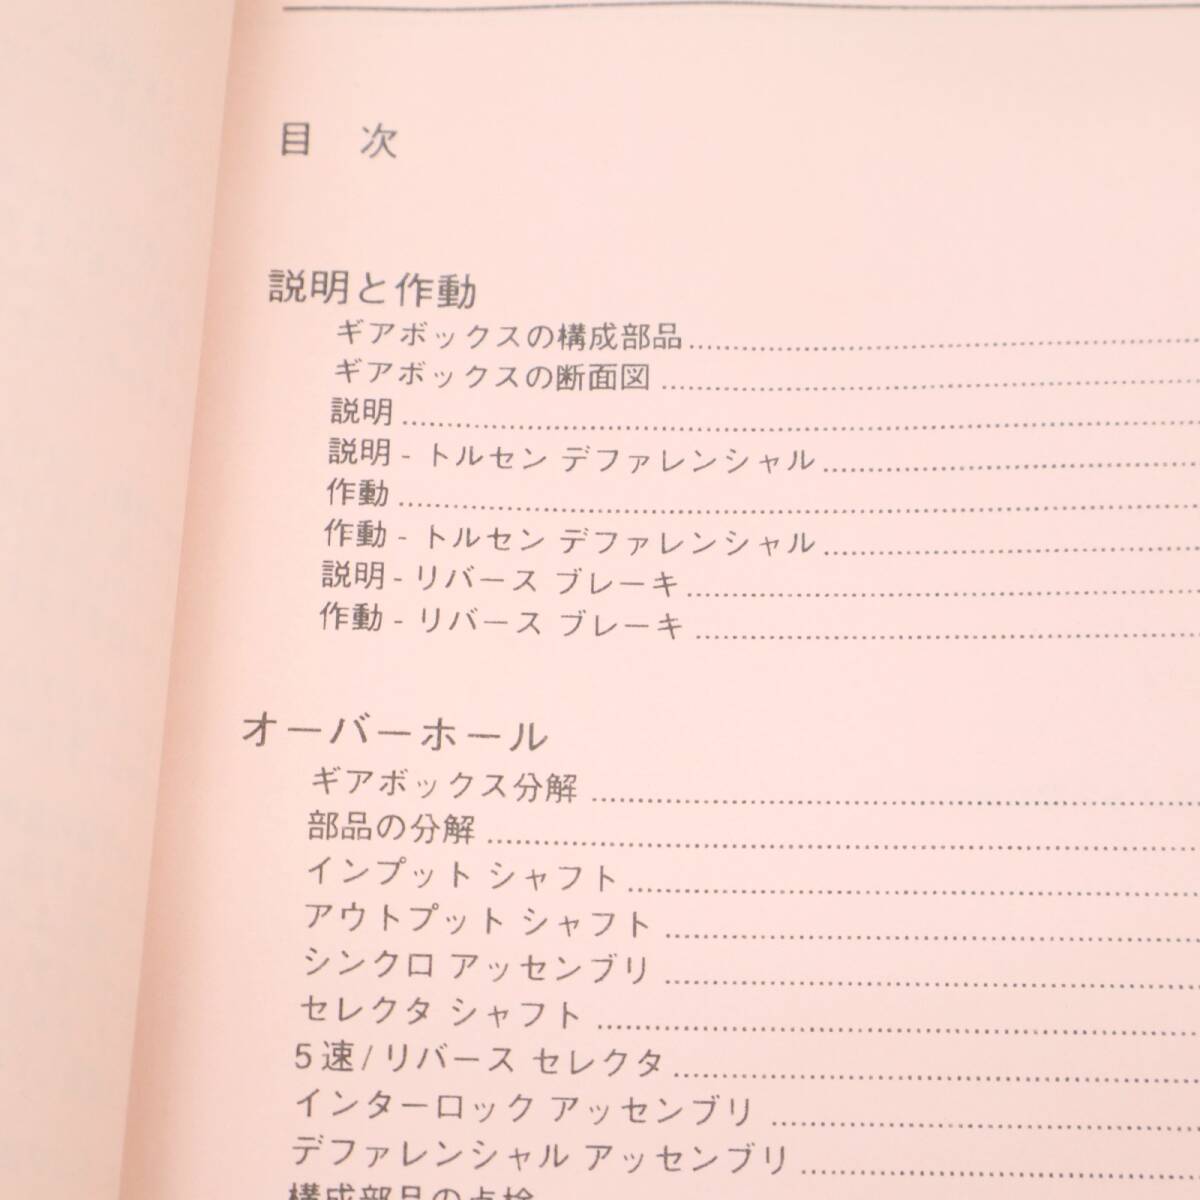 目 次
説明と作動
ギアボックスの構成部品
ギアボックスの断面図
説明
説明 - トルセン デファレンシャル
作動
作動 - トルセン デファレンシャル
説明 - リバース ブレーキ
作動 - リバース ブレーキ
オーバーホール
ギアボックス分解
部品の分解
インプット シャフト
アウトプット シャフト
シンクロ アッセンブリ
セレクタ シャフト
5速/リバース セレクタ
インターロック アッセンブリ
デファレンシャル アッセンブリ
構成部品の点検